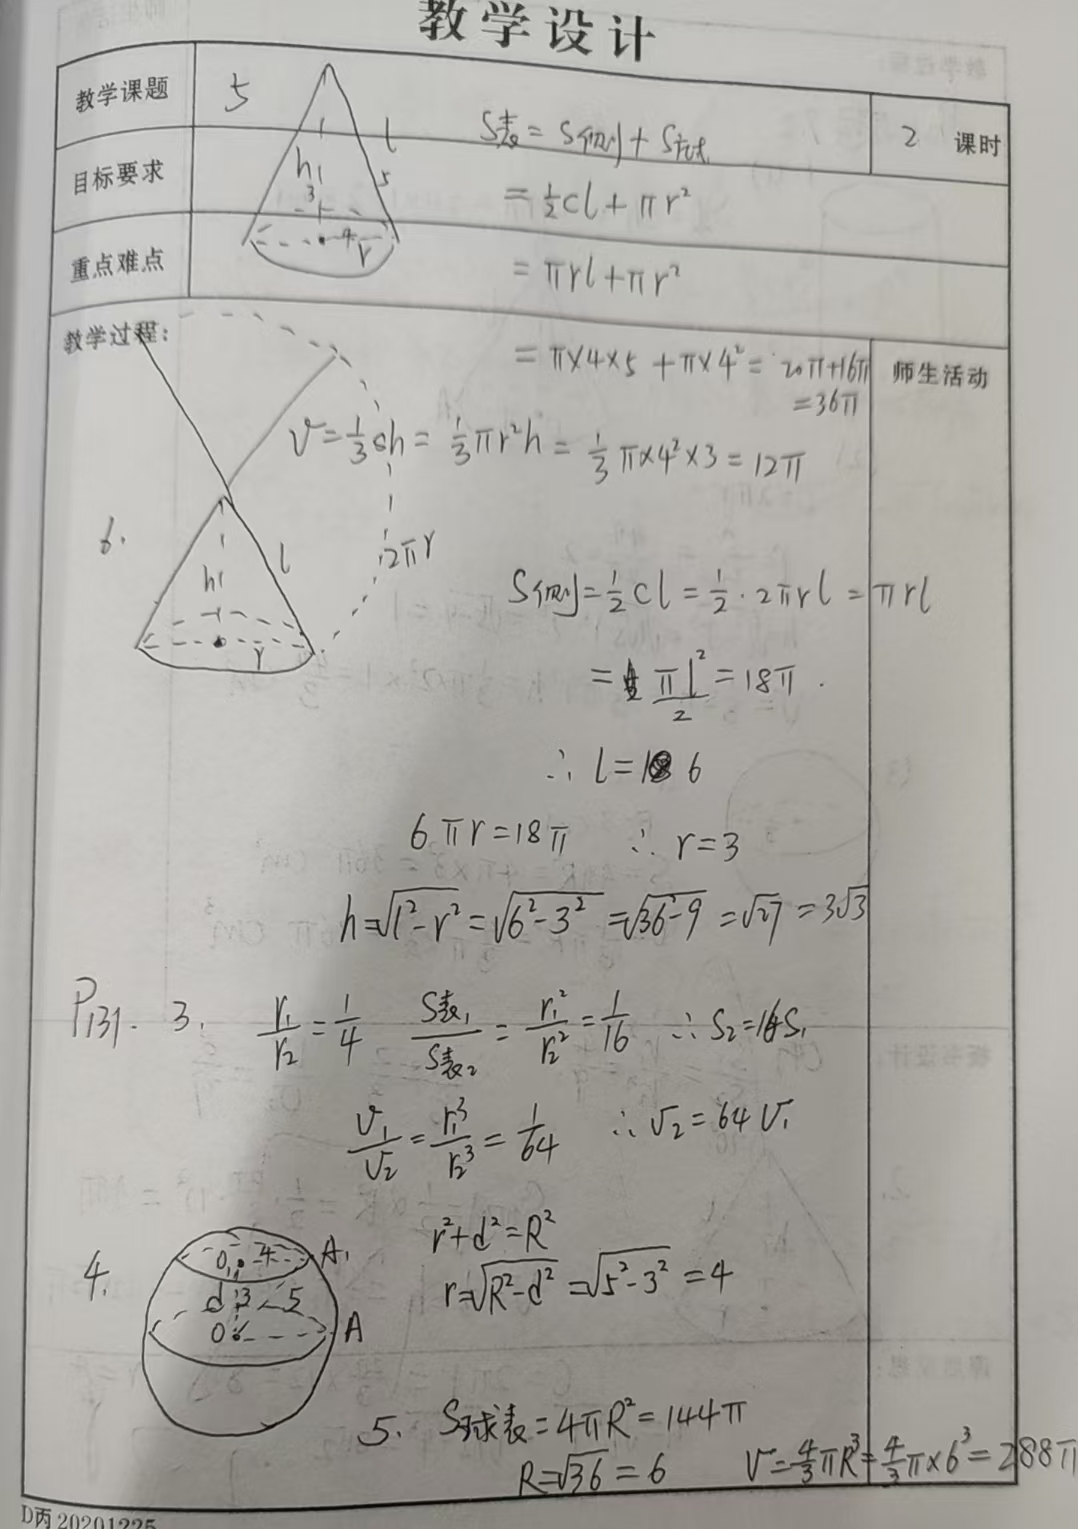 教学设计
教学课题 5 S表=S侧+S底 2 课时
l
h 3 5
4 r
目标要求 =½cl+πr²
重点难点 =πrl+πr²
教学过程: =π×4×5+π×4²=20π+16π 师生活动
=36π
V=⅓sh=⅓πr²h=⅓π×4²×3=12π
6. h l r 2πr
S侧=½cl=½·2πrl=πrl
=πl²/2=18π.
∴l=6
6πr=18π ∴r=3
h=√(l²-r²)=√(6²-3²)=√(36-9)=√27=3√3
P131. 3. r₁/r₂=1/4 S表₁/S表₂=r₁²/r₂²=1/16 ∴S₂=16S₁
V₁/V₂=r₁³/r₂³=1/64 ∴V₂=64V₁
4. O₁ 4 A₁ r²+d²=R²
d 3 5 r=√(R²-d²)=√(5²-3²)=4
O A
5. S球表=4πR²=144π
R=√36=6 V=4/3πR³=4/3π×6³=288π
D丙20201225